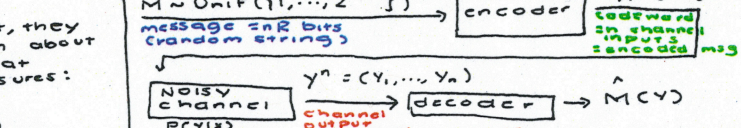 r, they
n about
at
sures:
M ~ Unif({1,..., 2
encoder
message = nR bits
(random string)
codeword
= n channel
inputs
= encoded msg
Noisy
channel
P(Y|X)
Yⁿ = (Y₁,..., Yₙ)
channel
output
decoder
→ M̂(Y)